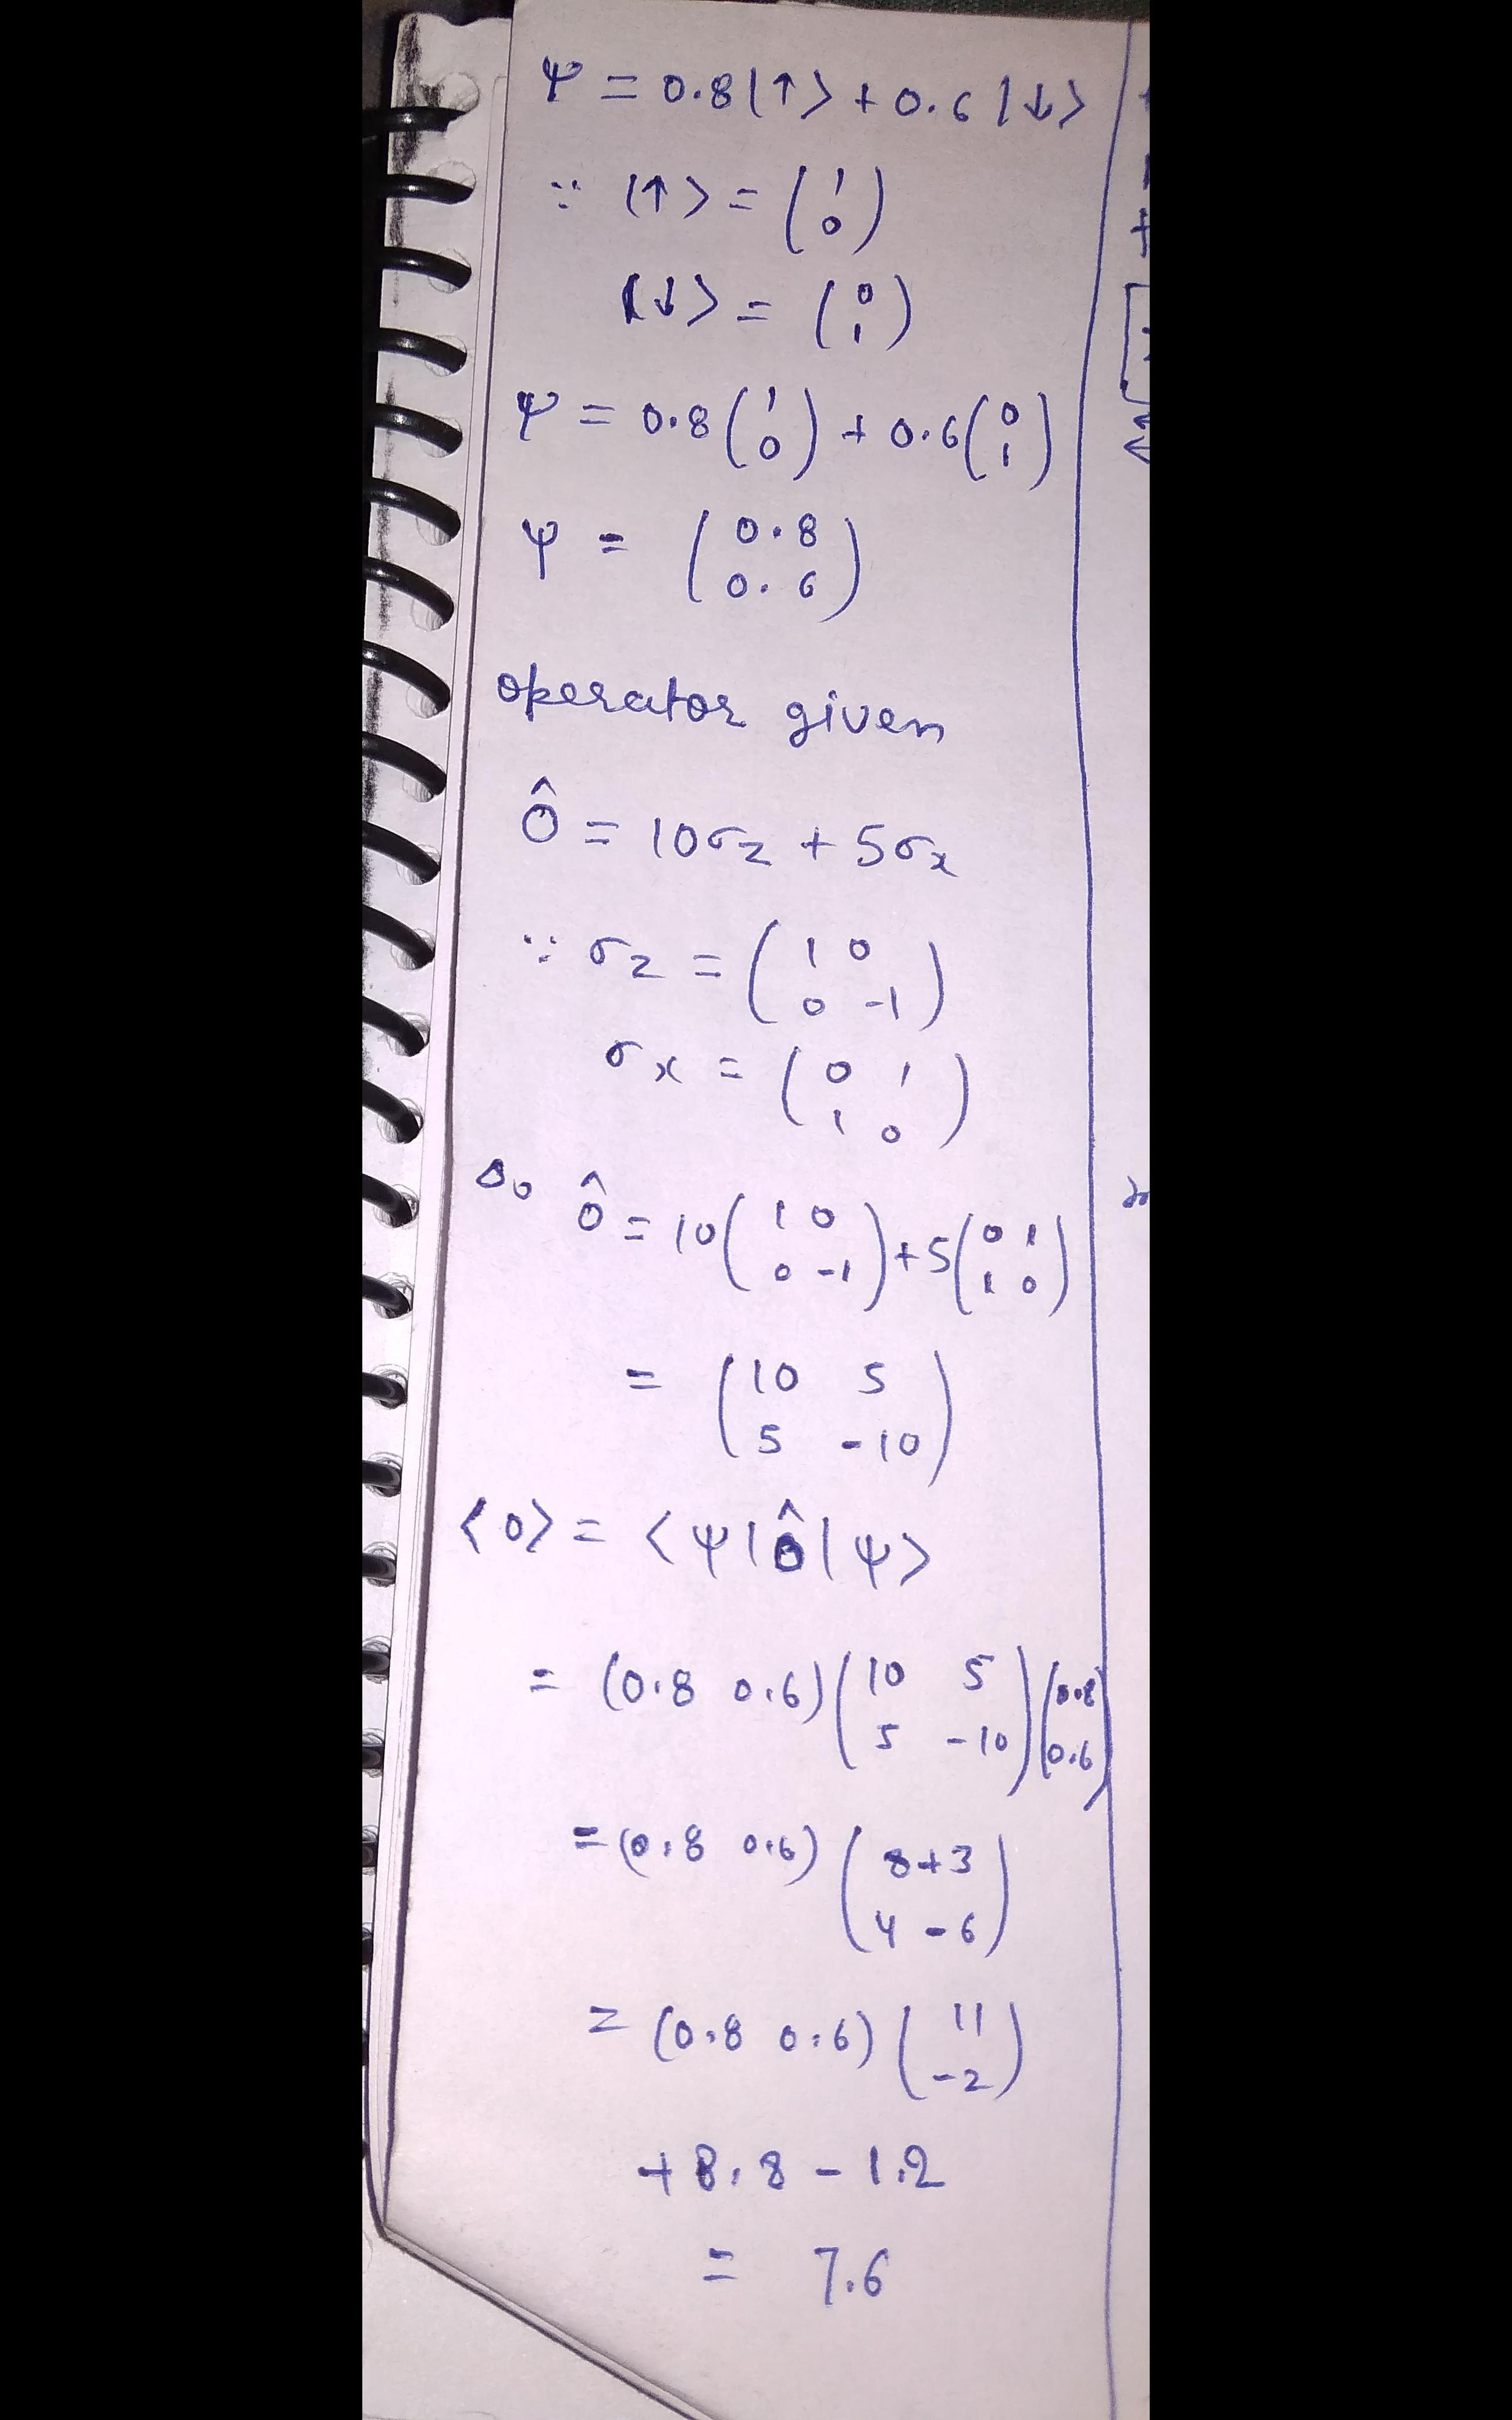 ψ = 0.8|↑> + 0.6|↓>
∵ |↑> = (1 0)
|↓> = (0 1)
ψ = 0.8(1 0) + 0.6(0 1)
ψ = (0.8 0.6)
operator given
Ô = 10σz + 5σx
∵ σz = (1 0 0 -1)
σx = (0 1 1 0)
So Ô = 10(1 0 0 -1) + 5(0 1 1 0)
= (10 5 5 -10)
<0> = <ψ|Ô|ψ>
= (0.8 0.6)(10 5 5 -10)(0.8 0.6)
= (0.8 0.6)(8+3 4-6)
= (0.8 0.6)(11 -2)
+8.8 - 1.2
= 7.6